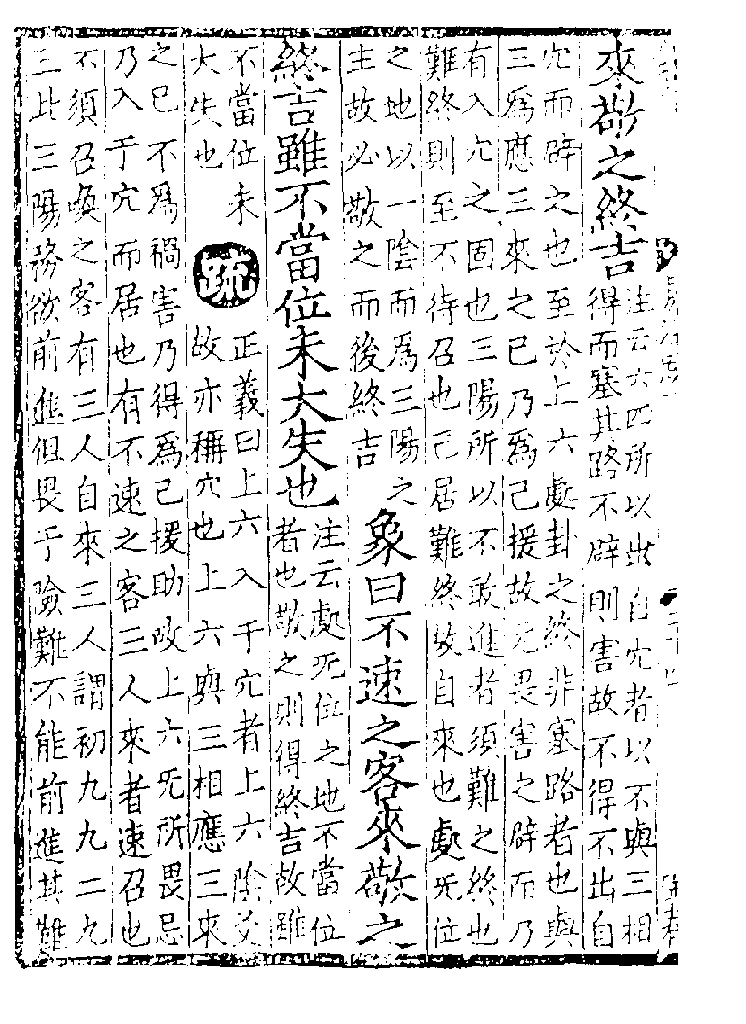 來敬之終吉
注云六四所以出自穴者以不與三相
得而塞其路不辟則害故不得不出自
穴而辟之也至於上六處卦之終非塞路者也與
三爲應三來之已乃爲己援故无畏害之辟而乃
有入穴之固也三陽所以不敢進者須難之終也
難終則至不待召也己居難終故自來也處无位
之地以一陰而爲三陽之
主故必敬之而後終吉
象曰不速之客來敬之
終吉雖不當位未大失也
注云處无位之地不當位
者也敬之則得終吉故雖
不當位未
大失也
疏
正義曰上六入于穴者上六陰爻
故亦稱穴也上六與三相應三來
之已不爲禍害乃得爲己援助故上六无所畏忌
乃入于穴而居也有不速之客三人來者速召也
不須召喚之客有三人自來三人謂初九九二九
三此三陽務欲前進但畏于險難不能前進其難